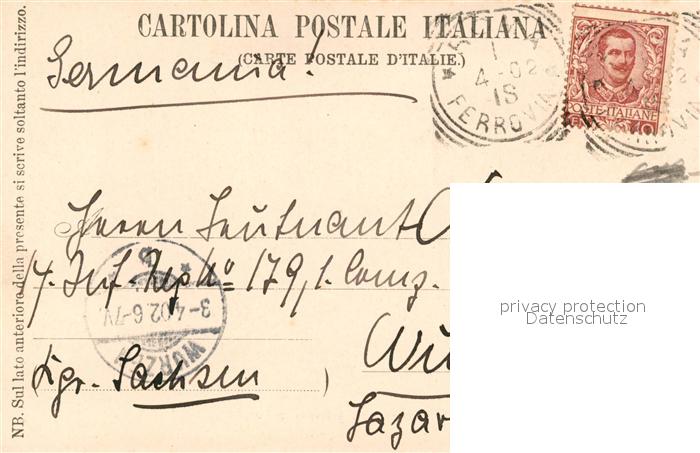 CARTOLINA POSTALE ITALIANA
(CARTE POSTALE D'ITALIE.)
Germania!
4-02
1S
FERROVIA
POSTE ITALIANE
NB. Sul lato anteriore della presente si scrive soltanto l'indirizzo.
Herrn Leutnant
Inf. Rgt No 179, 1. Comp.
3-4.02.6-7V.
WURZEN
Wu
Kgr. Sachsen )
Lazar
privacy protection
Datenschutz